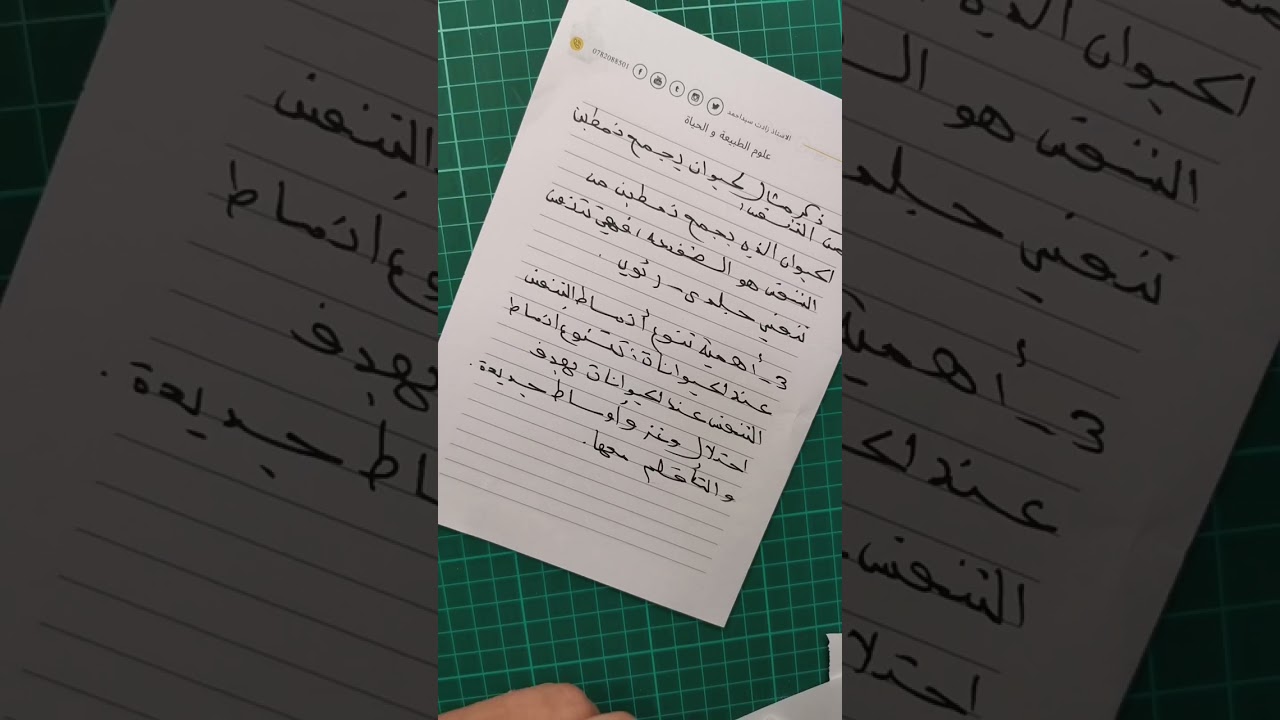 0782088501
الاستاذ زادت سيداحمد
علوم الطبيعة و الحياة
ذكر مثال لحيوان يجمع نمطين
من التنفس:
الحيوان الذي يجمع نمطين من
التنفس هو الضفدعة، فهي تتنفس
تنفس جلدي - رئوي.
3 - أهمية تنوع أنماط التنفس
عند الحيوانات: تتنوع انماط
التنفس عند الحيوانات بهدف
احتلال وغزو أوساط جديدة.
والتأقلم معها.